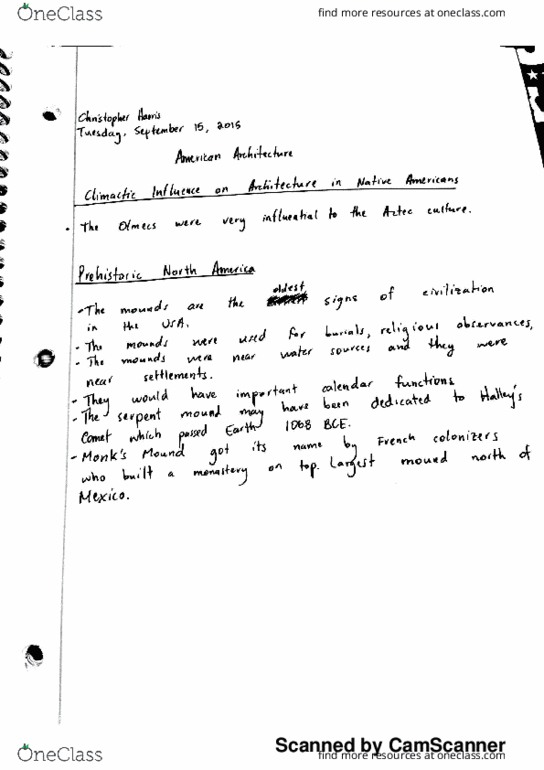 OneClass
find more resources at oneclass.com
Christopher Harris
Tuesday, September 15, 2015
American Architecture
Climactic Influence on Architecture in Native Americans
• The Olmecs were very influential to the Aztec culture.
Prehistoric North America
- The mounds are the oldest signs of civilization
in the USA.
- The mounds were used for burials, religious observances,
- The mounds were near water sources and they were
near settlements.
- They would have important calendar functions
- The serpent mound may have been dedicated to Halley's
Comet which passed Earth 1068 BCE.
- Monk's Mound got its name by French colonizers
who built a monastery on top. Largest mound north of
Mexico.
Scanned by CamScanner
OneClass
find more resources at oneclass.com